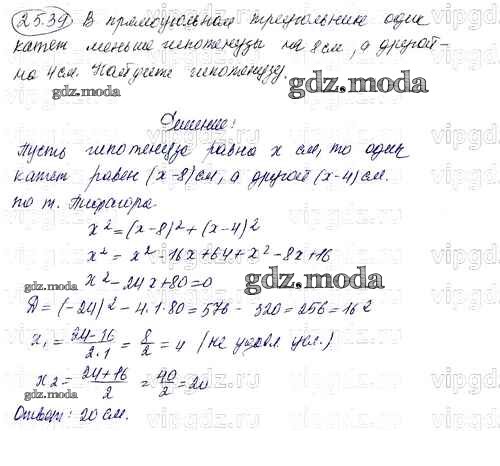 25.39 В прямоугольном треугольнике один
катет меньше гипотенузы на 8 см, а другой –
на 4 см. Найдите гипотенузу.
gdz.moda
Решение:
Пусть гипотенуза равна x см, то один
катет равен (x-8) см, а другой (x-4) см.
по т. Пифагора.
x² = (x-8)² + (x-4)²
x² = x² - 16x + 64 + x² - 8x + 16
gdz.moda x² - 24x + 80 = 0 gdz.moda
D = (-24)² - 4·1·80 = 576 - 320 = 256 = 16²
x₁ = (24-16)/(2·1) = 8/2 = 4 (не удовл усл.)
x₂ = (24+16)/2 = 40/2 = 20
gdz.moda
Ответ: 20 см.